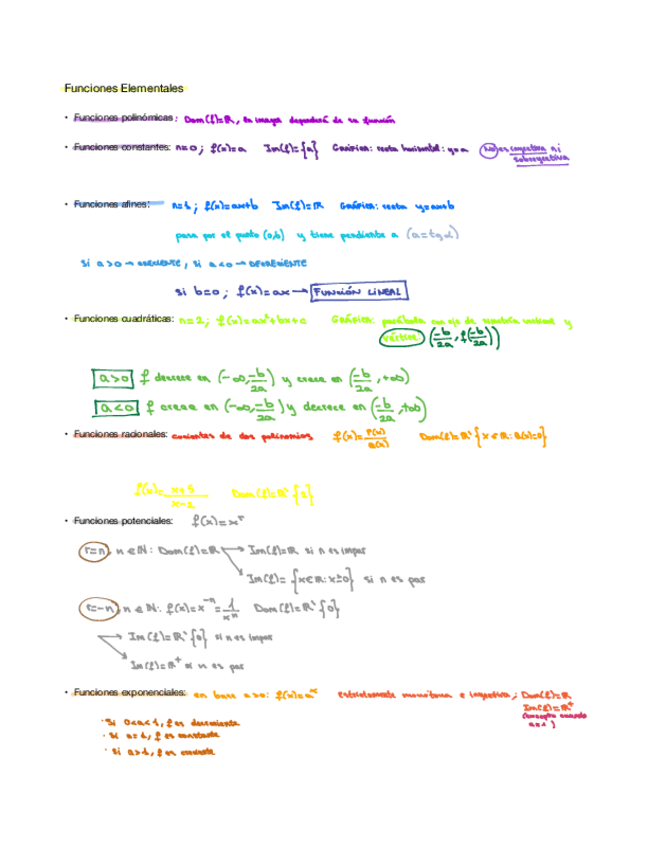 Funciones Elementales
• Funciones polinómicas: Dom(f)=ℝ, la imagen dependerá de su función
• Funciones constantes: n=0; f(x)=a Im(f)={a} GRÁFICA: recta horizontal: y=a No es inyectiva ni
sobreyectiva
• Funciones afines: n=1; f(x)=ax+b Im(f)=ℝ GRÁFICA: recta y=ax+b
pasa por el punto (0,b) y tiene pendiente a (a=tgα)
Si a>0 → CRECIENTE, si a<0 → DECRECIENTE
si b=0; f(x)=ax → FUNCIÓN LINEAL
• Funciones cuadráticas: n=2; f(x)=ax²+bx+c GRÁFICA: parábola con eje de simetría vertical y
vértice: (-b/2a, f(-b/2a))
a>0 f decrece en (-∞, -b/2a) y crece en (-b/2a, +∞)
a<0 f crece en (-∞, -b/2a) y decrece en (-b/2a, +∞)
• Funciones racionales: cocientes de dos polinomios f(x)=P(x)/Q(x) Dom(f)=ℝ\{x∈ℝ: Q(x)=0}
f(x)=x+5/x-2 Dom(f)=ℝ\{2}
• Funciones potenciales: f(x)=x^r
r=n, n∈ℕ: Dom(f)=ℝ → Im(f)=ℝ si n es impar
Im(f)={x∈ℝ: x≥0} si n es par
r=-n, n∈ℕ: f(x)=x^-n=1/x^n Dom(f)=ℝ\{0}
→ Im(f)=ℝ\{0} si n es impar
Im(f)=ℝ⁺ si n es par
• Funciones exponenciales: en base a>0: f(x)=a^x estrictamente monótona e inyectiva; Dom(f)=ℝ
Im(f)=ℝ⁺
(excepto cuando
a=1)
· Si 0<a<1, f es decreciente
· Si a=1, f es constante
· Si a>1, f es creciente